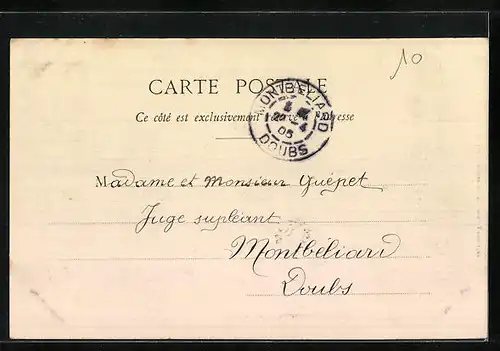 10
CARTE POSTALE
Ce côté est exclusivement réservé à l'adresse
MONTBÉLIARD
22 4
05
DOUBS
Madame et Monsieur Guépet
Juge supléant
Montbéliard
Doubs